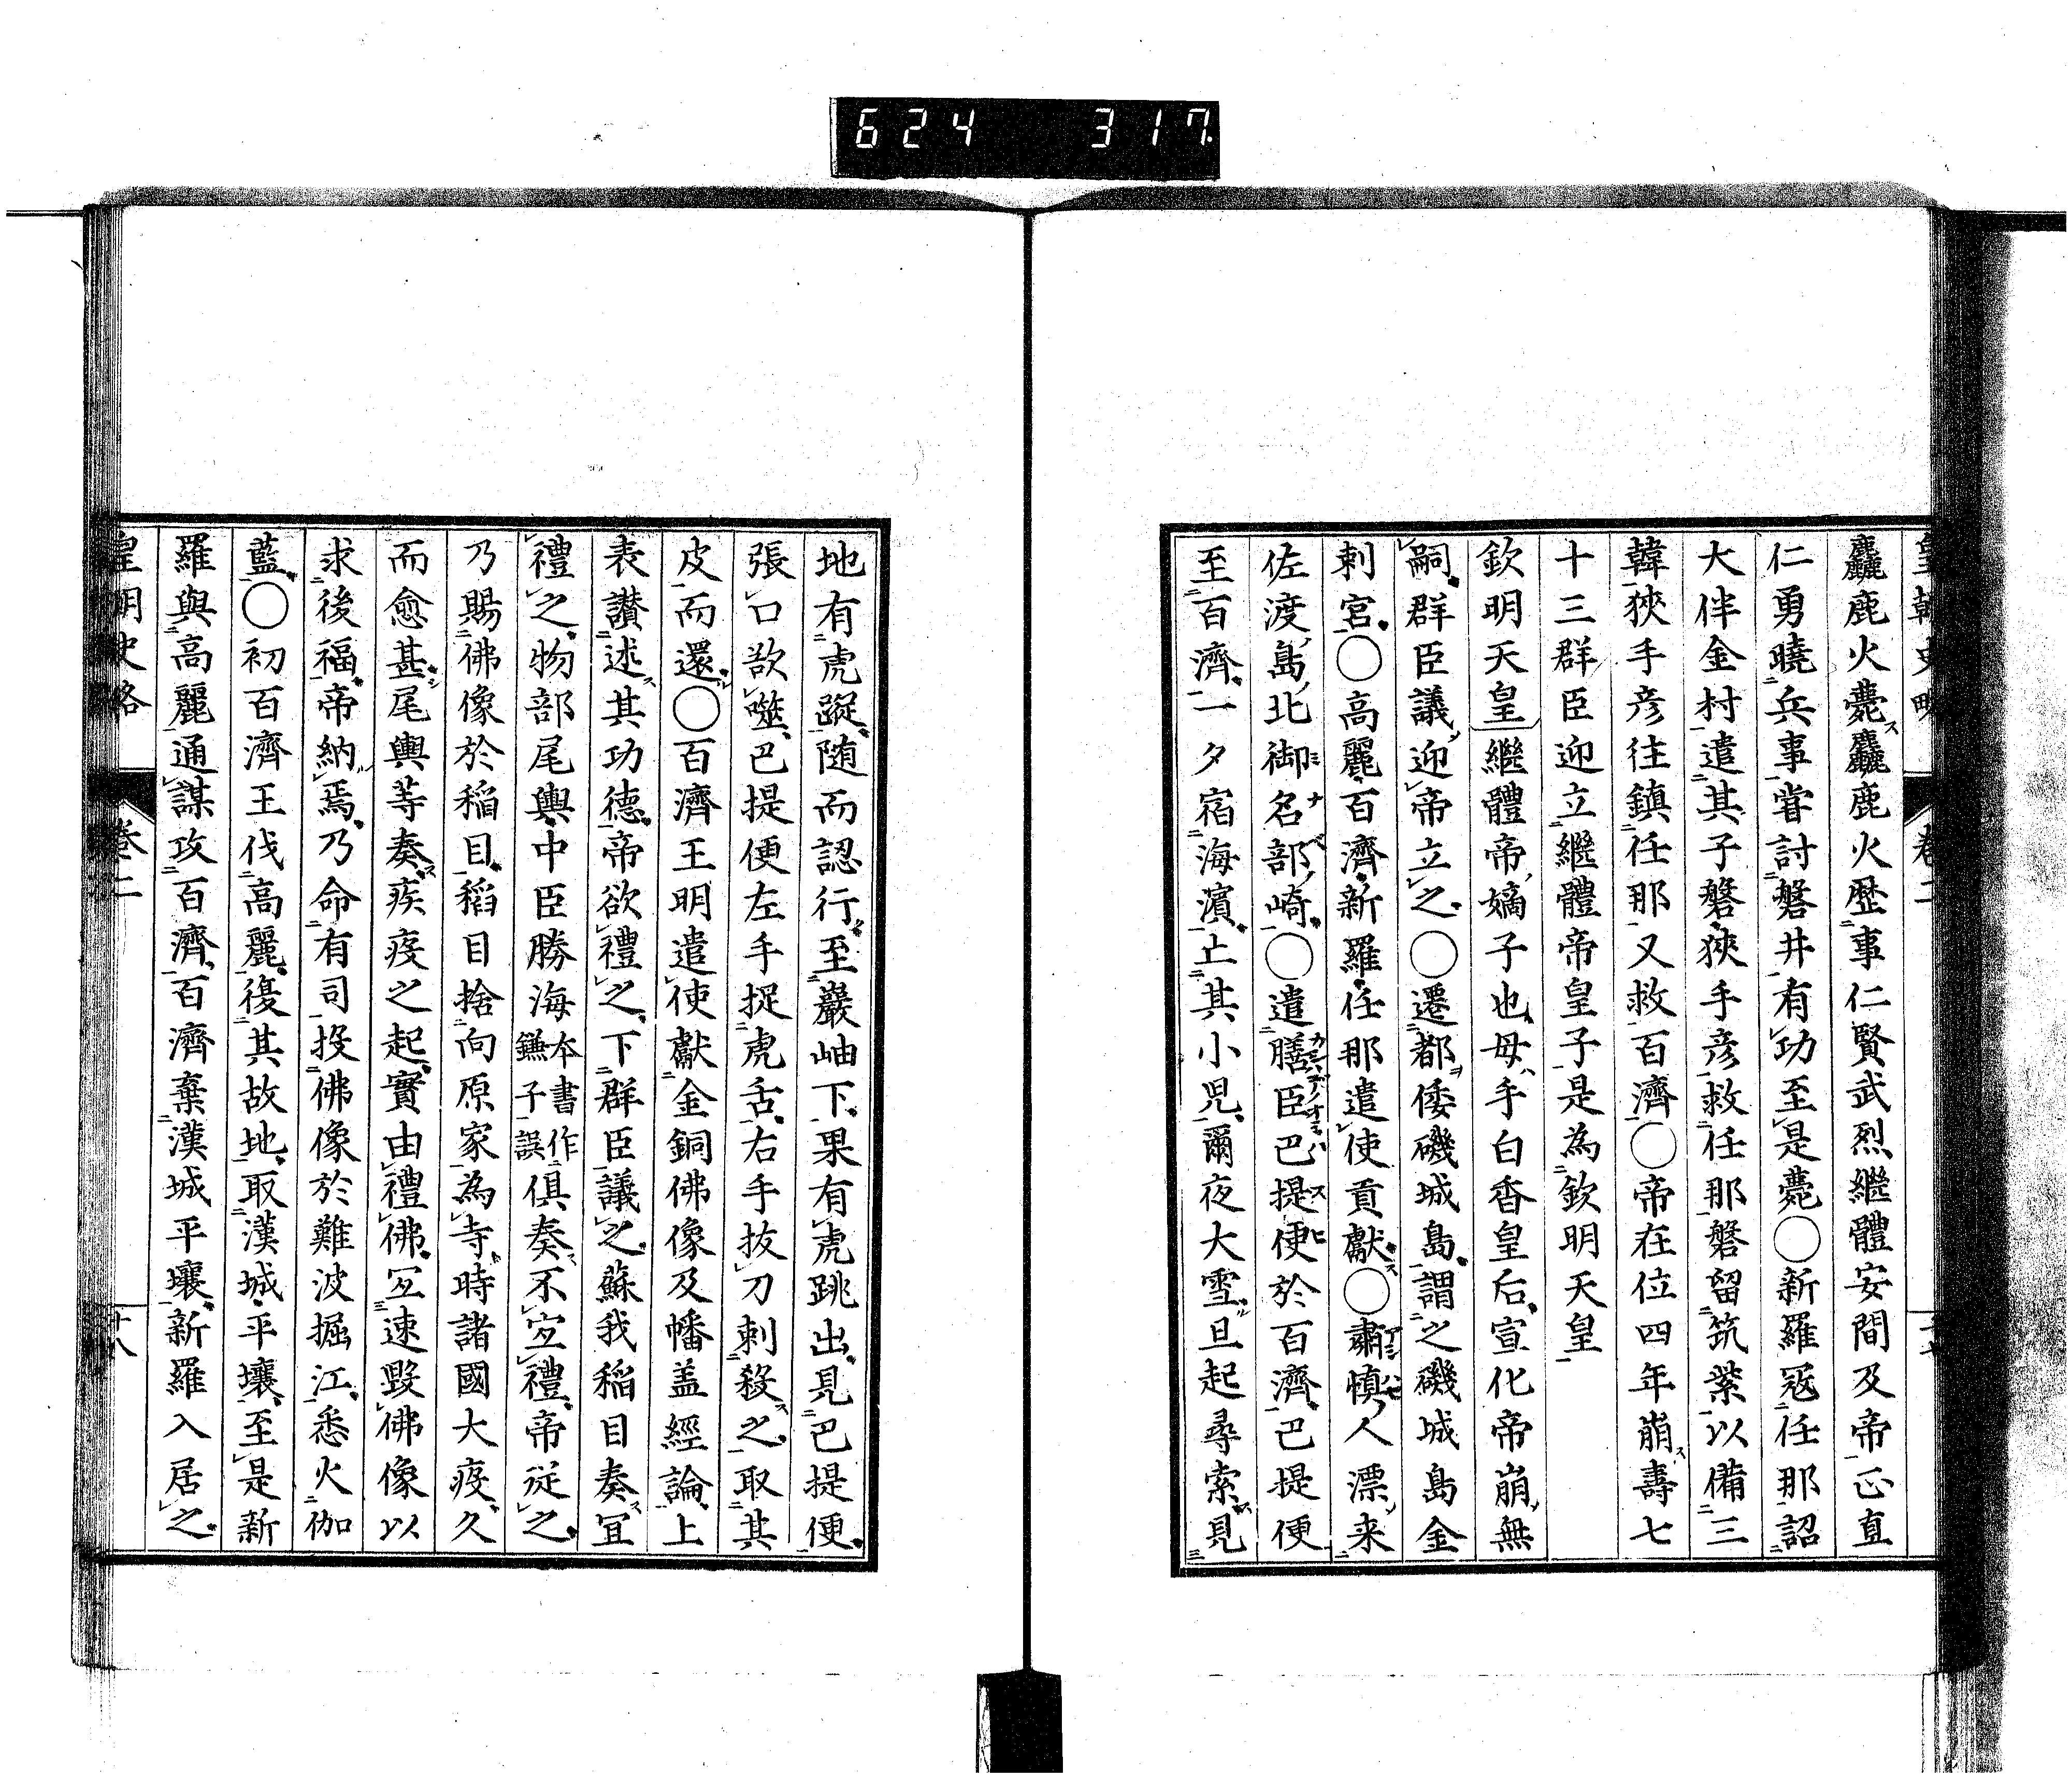 624 317
麤鹿火薨麤鹿火歴事仁賢武烈繼體安間及帝正直
仁勇曉兵事嘗討磐井有功至是薨〇新羅寇任那詔
大伴金村遣其子磐狹手彦救任那磐留筑紫以備三
韓狹手彦往鎮任那又救百濟〇帝在位四年崩壽七
十三群臣迎立繼體帝皇子是為欽明天皇
欽明天皇繼體帝嫡子也母手白香皇后宣化帝崩無
嗣群臣議迎帝立之〇遷都倭磯城島謂之磯城島金
刺宮〇高麗百濟新羅任那遣使貢獻〇肅慎人漂来
佐渡島北御名部崎〇遣膳臣巴提便於百濟巴提便
至百濟一夕宿海濱上其小兒爾夜大雪旦起尋索見
地有虎蹤随而認行至巖岫下果有虎跳出見巴提便
張口欲噬巴提便左手捉虎舌右手抜刀刺殺之取其
皮而還〇百濟王明遣使獻金銅佛像及幡盖經論上
表讃述其功德帝欲禮之下群臣議之蘇我稲目奏冝
禮之物部尾輿中臣勝海本書作鎌子誤俱奏不宜禮帝従之
乃賜佛像於稲目稲目捨向原家為寺時諸國大疫久
而愈甚尾輿等奏疾疫之起實由禮佛宜速毀佛像以
求後福帝納焉乃命有司投佛像於難波掘江悉火伽
藍〇初百濟王伐高麗復其故地取漢城平壤至是新
羅與高麗通謀攻百濟百濟棄漢城平壤新羅入居之
皇朝史略 卷二 十八